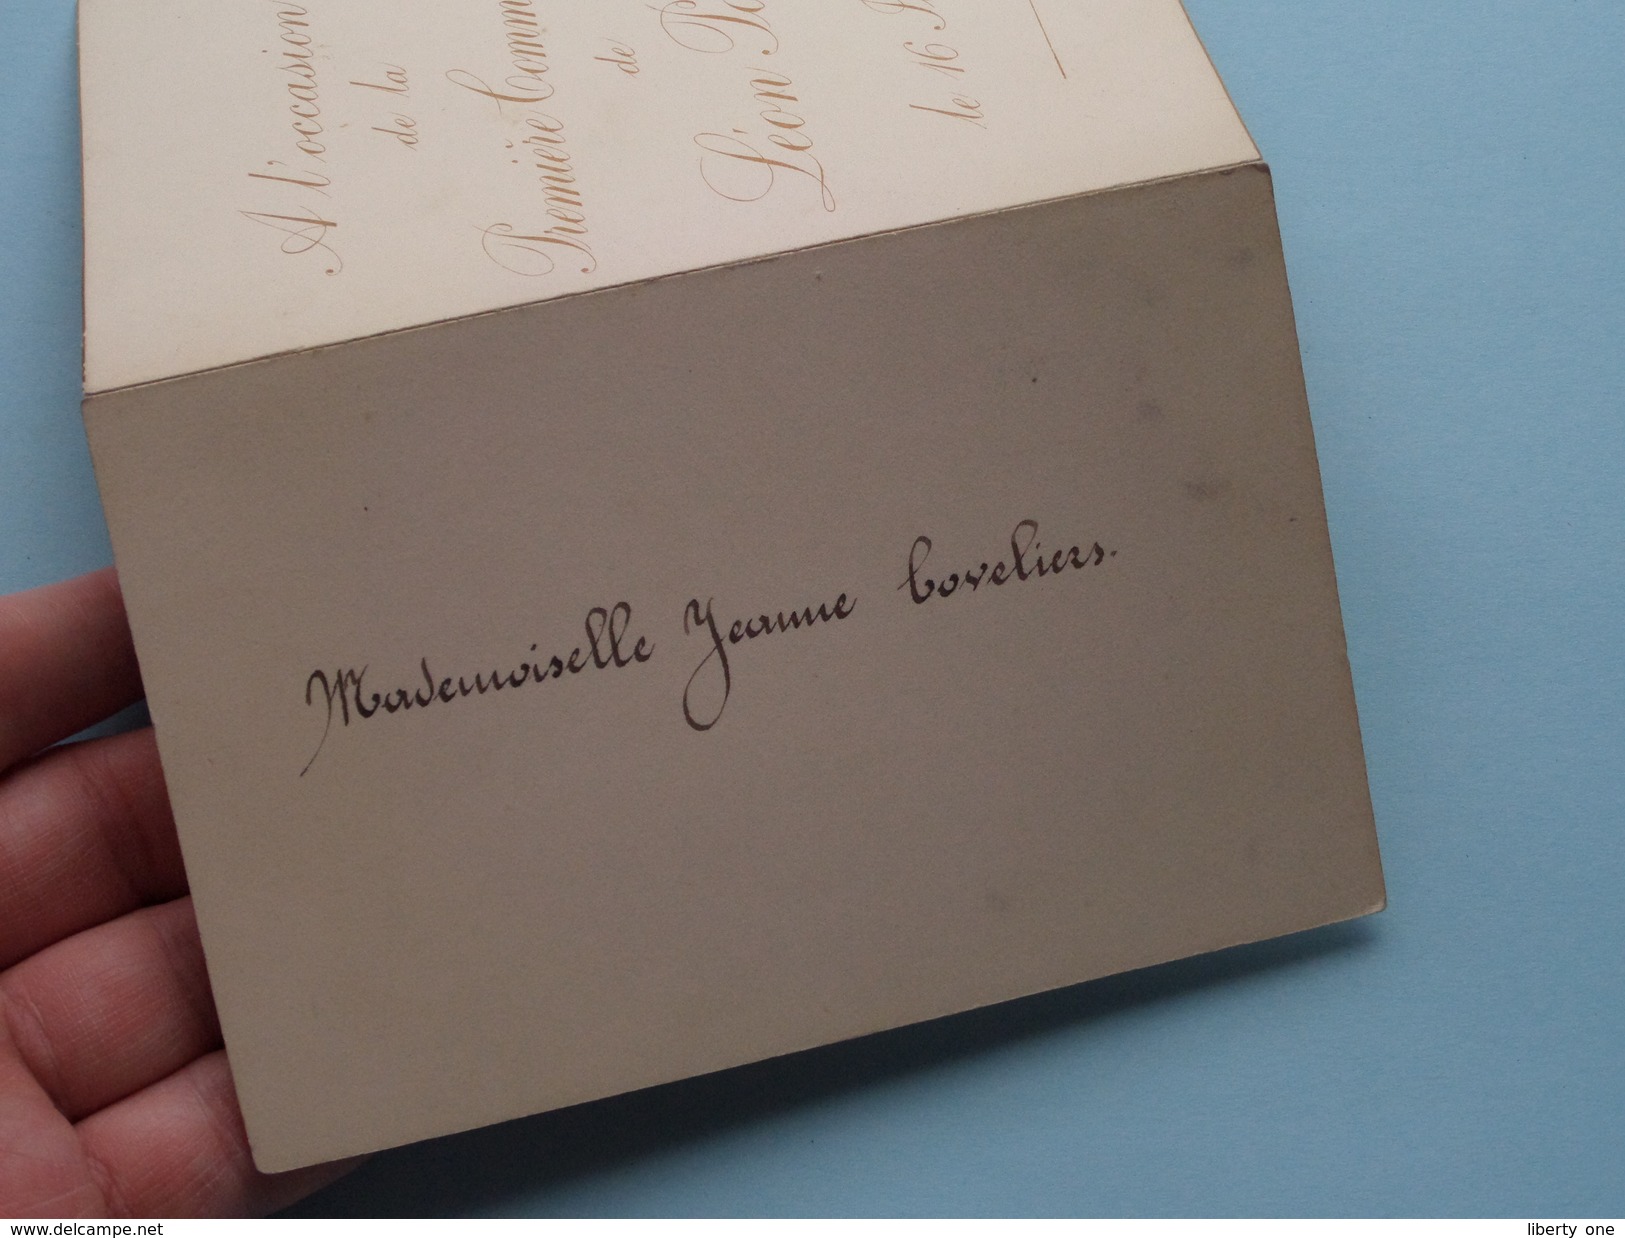 A l'occasion
de la
Première Comm
de
Léon
le 16
Mademoiselle Jeanne Coveliers.
www.delcampe.net
liberty one